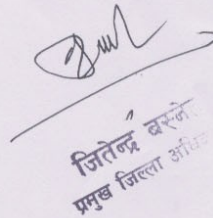 जितेन्द्र बस्ने
प्रमुख जिल्ला अधि